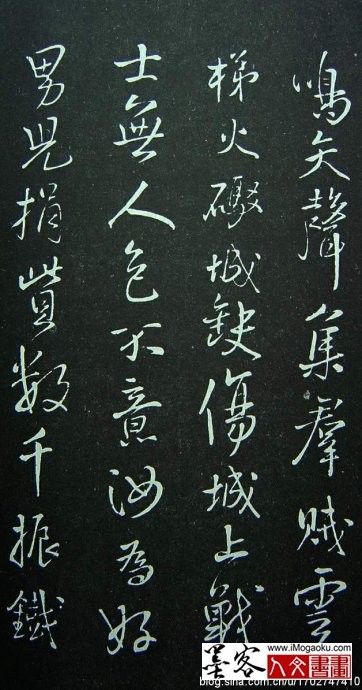 鳴矢聲集羣賊雲
梯火礮城缺傷城上戰
士無人色不意汝為好
男兒捐貲數千振鐵
墨客
www.iMogaoku.com
人文書畫
blog.sina.com.cn/u/1702747410